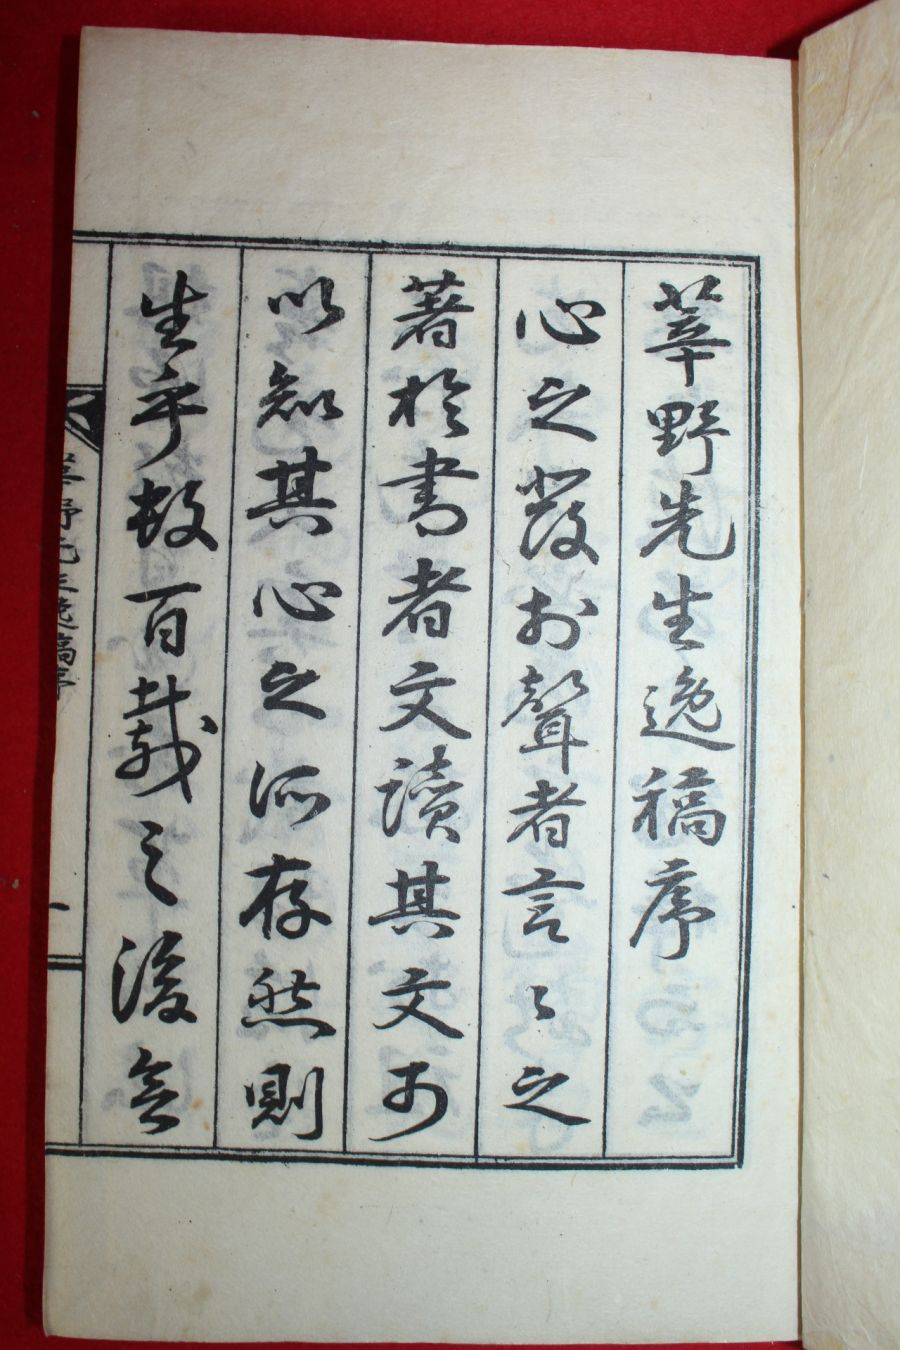 莘野先生逸稿序
心之發於聲者言々之
著於書者文讀其文可
以知其心之所存然則
生乎數百載之後
莘野先生逸稿序
一